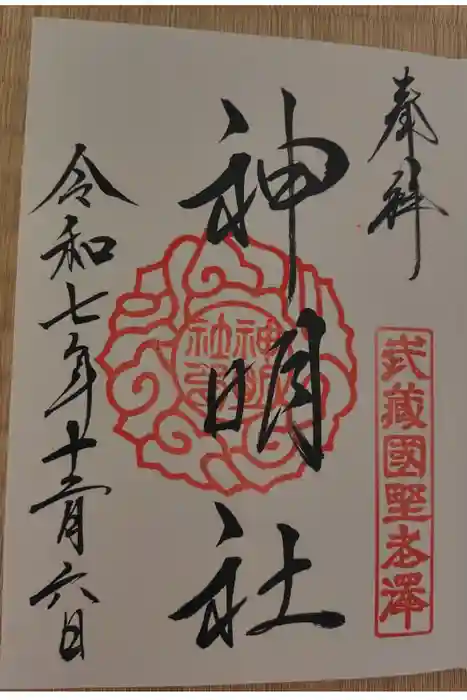 奉拝
武蔵國野老澤
神明社
神明社印
令和七年十二月六日